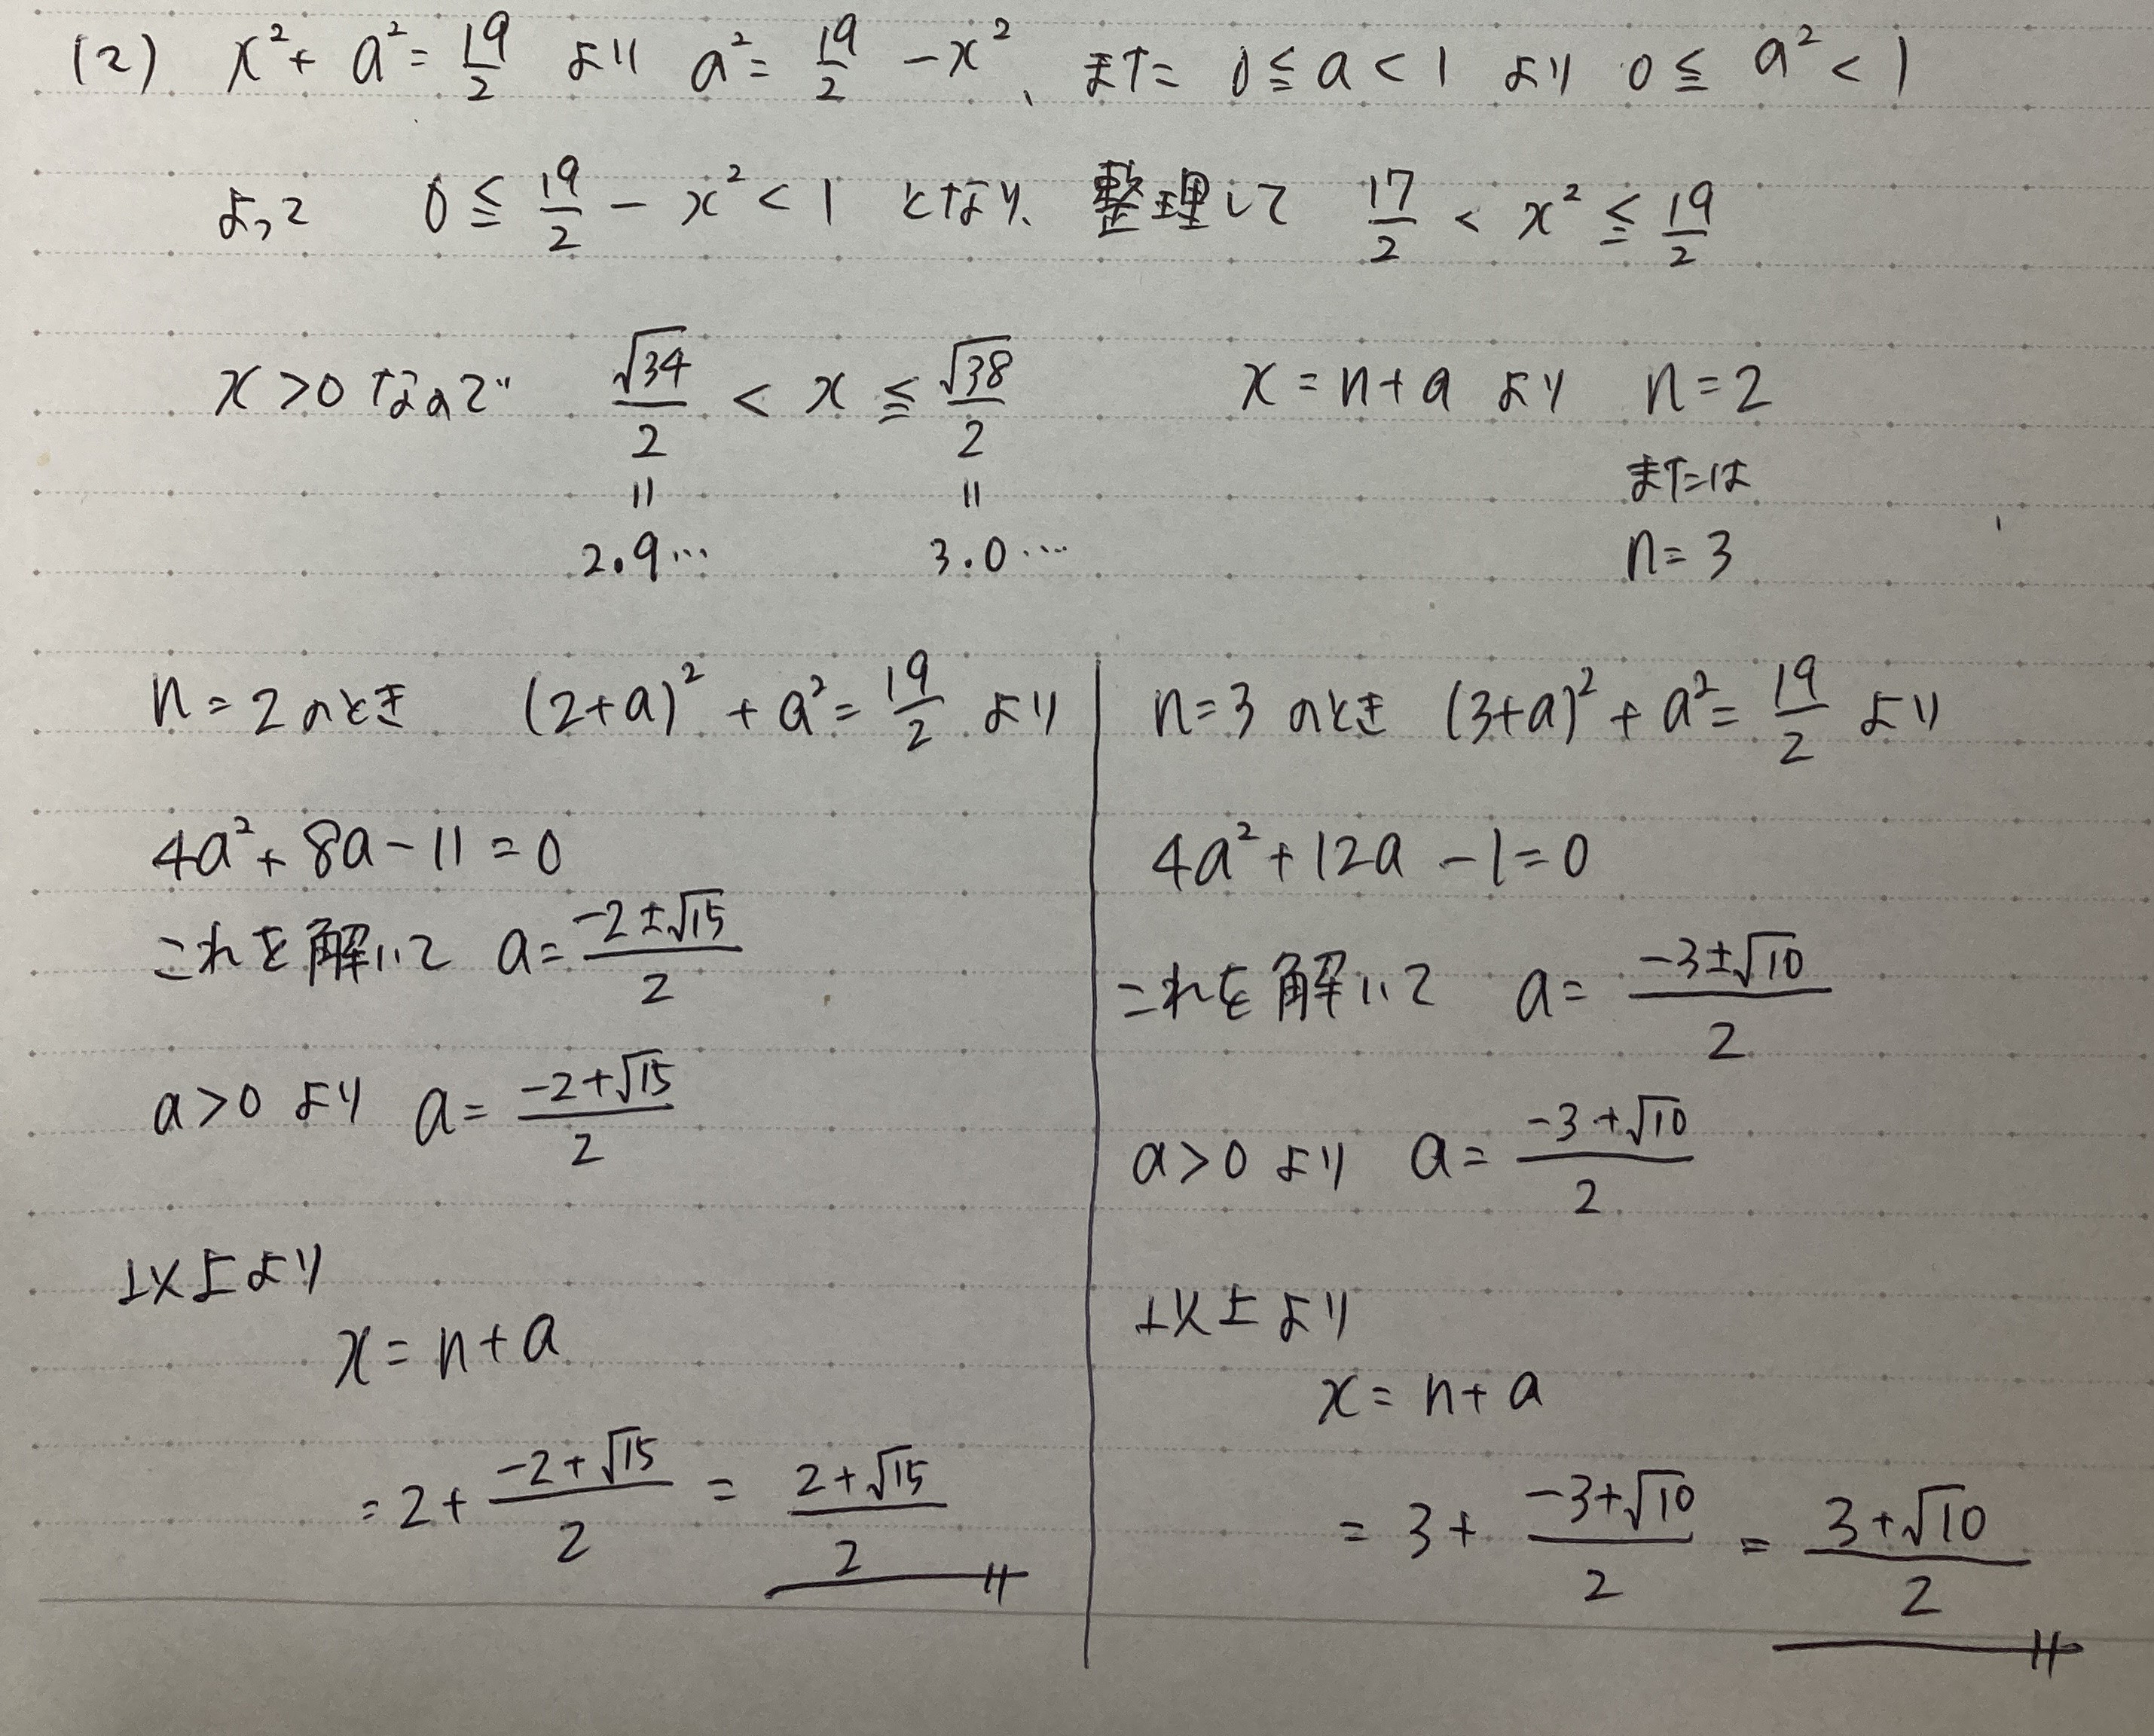 (2) x² + a² = 19/2 より a² = 19/2 - x²、また 0 ≦ a < 1 より 0 ≦ a² < 1
よって 0 ≦ 19/2 - x² < 1 となり、整理して 17/2 < x² ≦ 19/2
x > 0 なので √34/2 < x ≦ √38/2 x = n + a より n = 2
|| || または
2.9… 3.0… n = 3
n = 2 のとき (2+a)² + a² = 19/2 より
4a² + 8a - 11 = 0
これを解いて a = (-2 ± √15)/2
a > 0 より a = (-2 + √15)/2
以上より
x = n + a
= 2 + (-2 + √15)/2 = (2 + √15)/2
n = 3 のとき (3+a)² + a² = 19/2 より
4a² + 12a - 1 = 0
これを解いて a = (-3 ± √10)/2
a > 0 より a = (-3 + √10)/2
以上より
x = n + a
= 3 + (-3 + √10)/2 = (3 + √10)/2